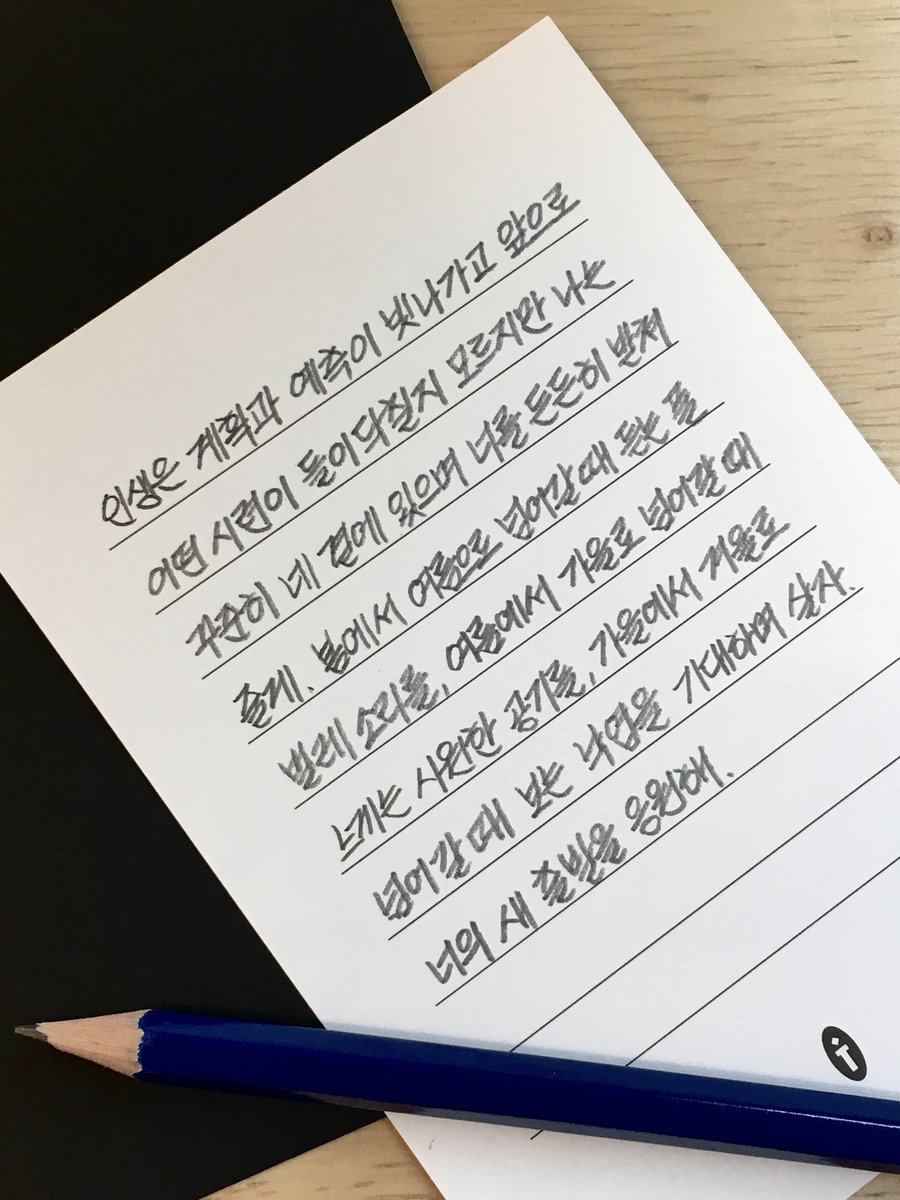 인생은 계획과 예측이 빗나가고 앞으로
어떤 시련이 들이닥칠지 모르지만 나는
꾸준히 네 곁에 있으며 너를 든든히 받쳐
줄게. 봄에서 여름으로 넘어갈 때 듣는 풀
벌레 소리를, 여름에서 가을로 넘어갈 때
느끼는 시원한 공기를, 가을에서 겨울로
넘어갈 때 보는 낙엽을 기대하며 살자.
너의 새 출발을 응원해.